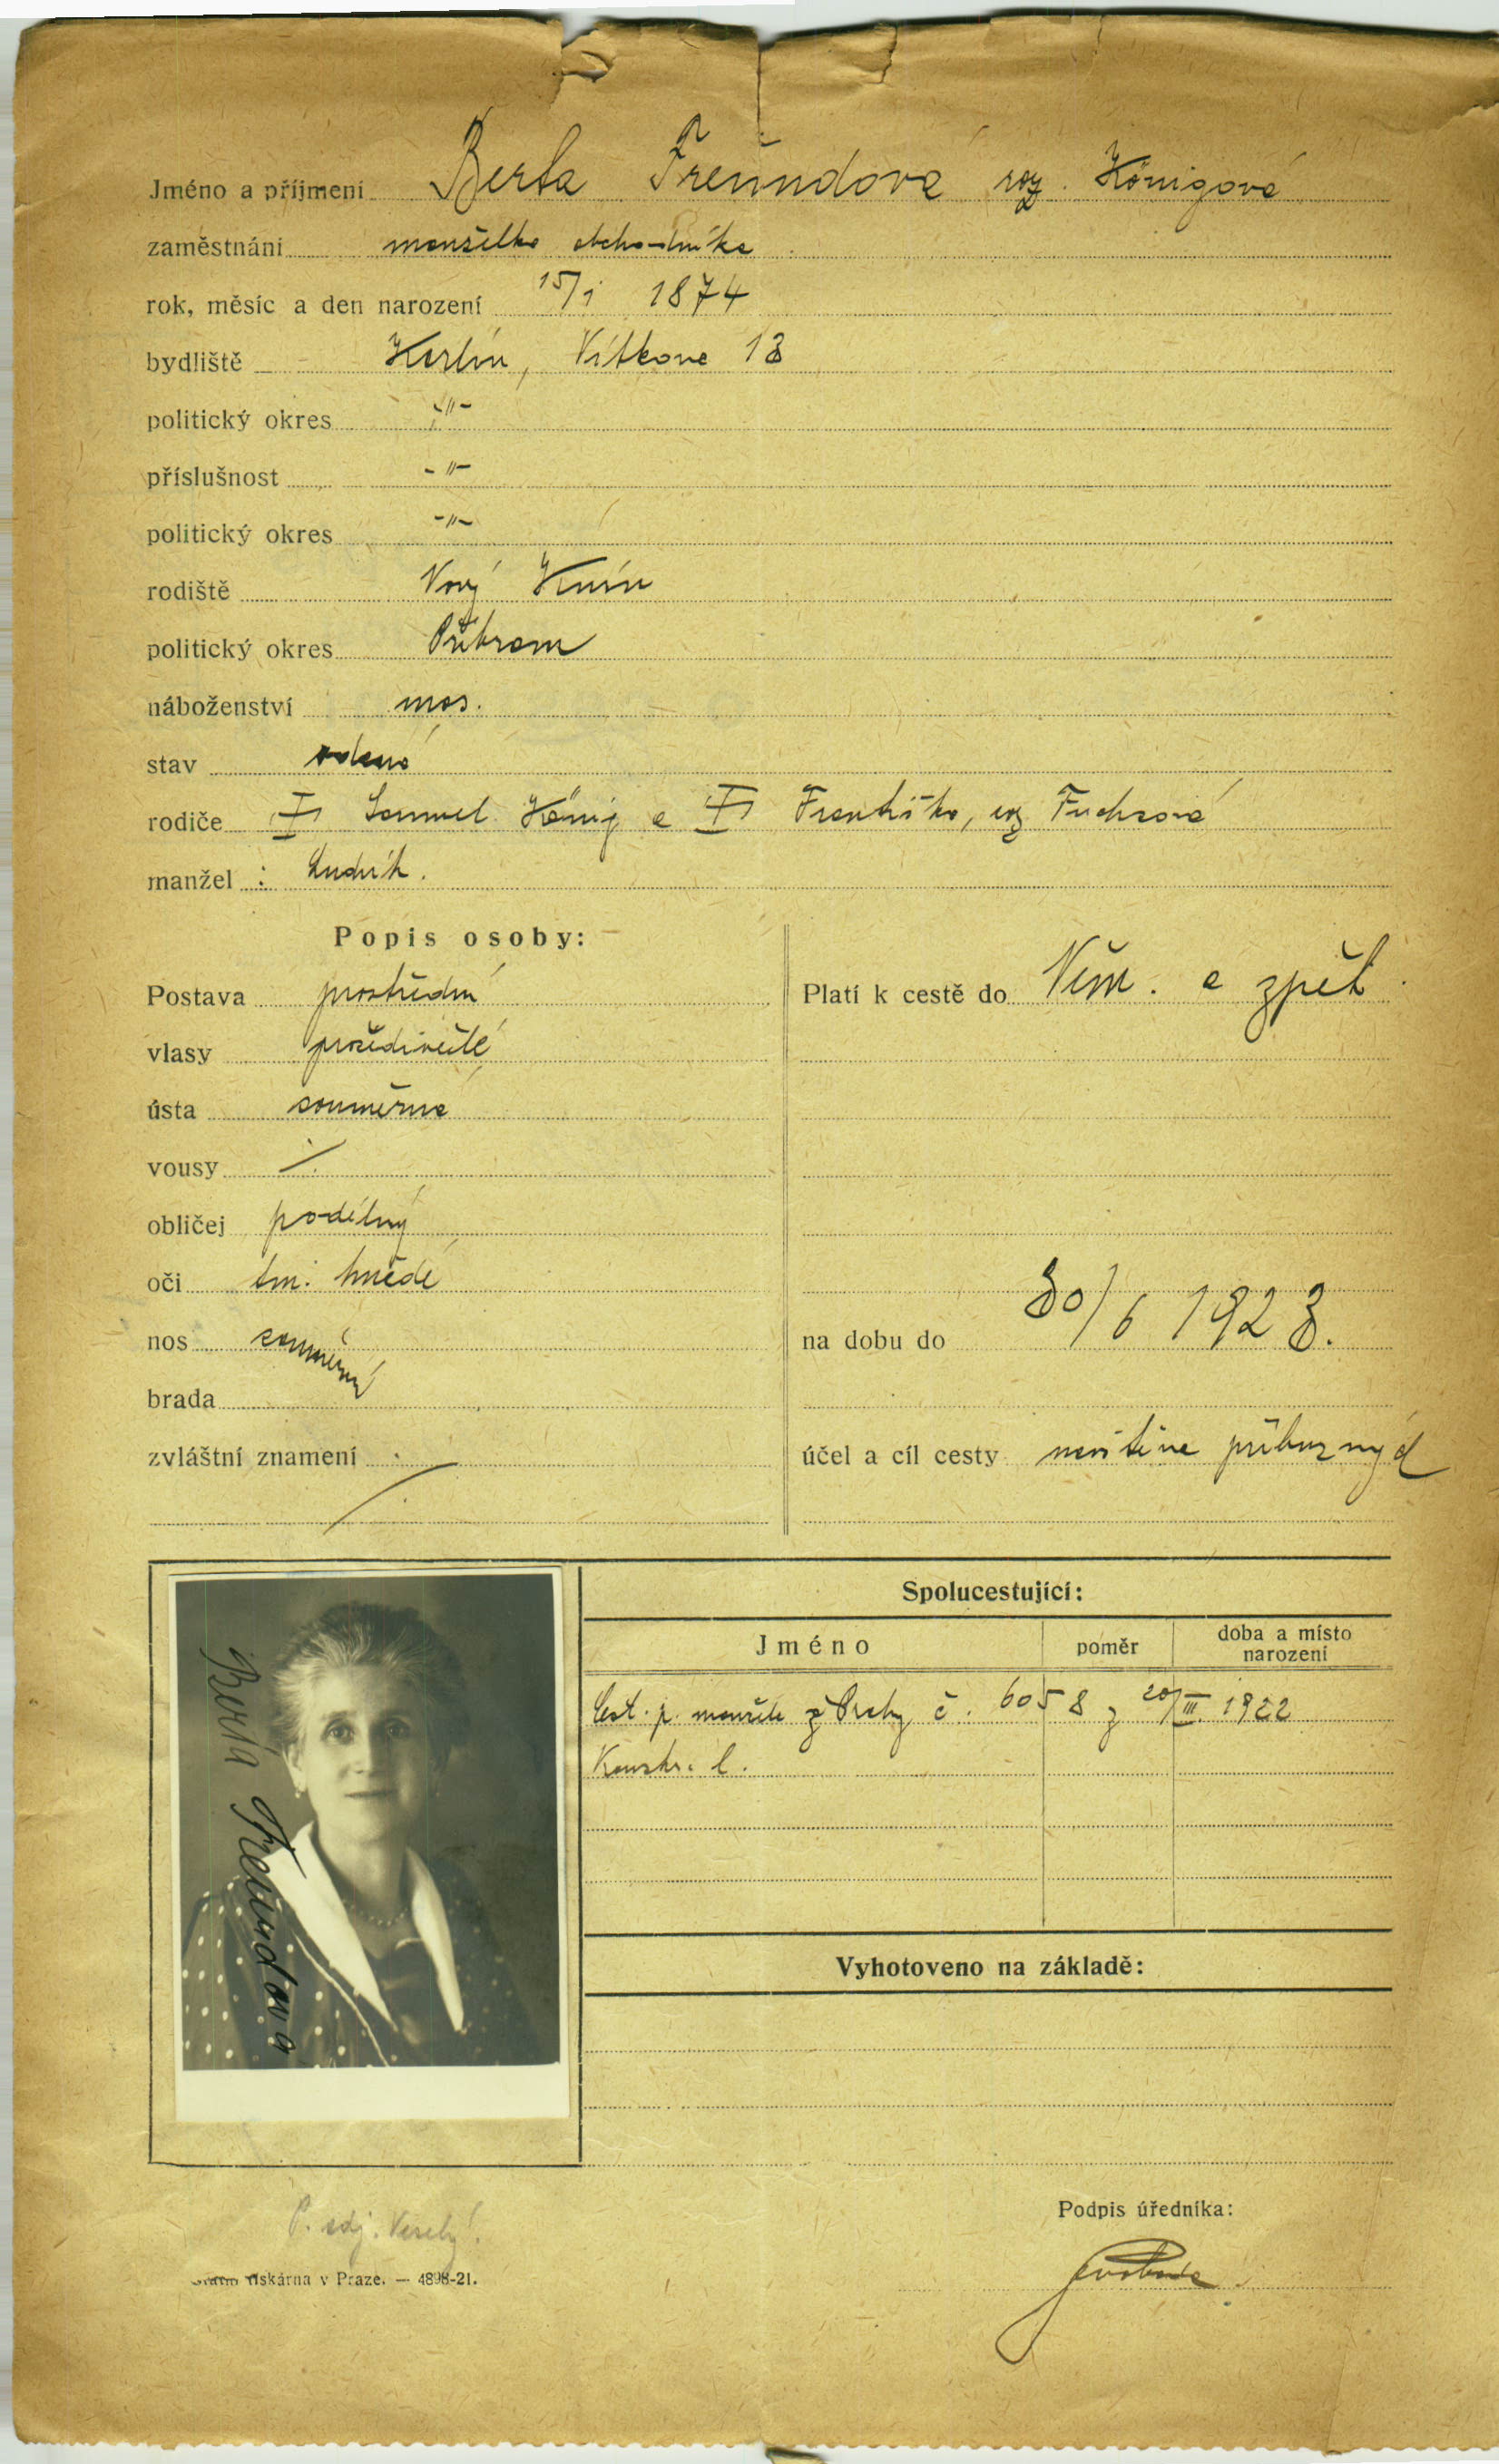 Jméno a příjmení Berta Freundová roz. Königová
zaměstnání manželka obchodníka
rok, měsíc a den narození 15/1 1874
bydliště Karlín, Vítkova 13
politický okres -"-
příslušnost -"-
politický okres -"-
rodiště Nový Knín
politický okres Příbram
náboženství mos.
stav vdaná
rodiče Samuel König a Františka, roz Fuchsová
manžel : Ludvík.
Popis osoby:
Postava prostřední
vlasy prošedivělé
ústa souměrná
vousy ∕.
obličej podélný
oči tm. hnědé
nos souměrný
brada
zvláštní znamení
Platí k cestě do Něm. a zpět.
na dobu do 30/6 1923.
účel a cíl cesty návštěva příbuzných
Berta Freundova
Spolucestující:
Jméno poměr doba a místo narození
Cest. p. manžela z Prahy č. 6058 z 20/III. 1922
Konskr. l.
Vyhotoveno na základě:
P. adj. Veselý.
tiskárna v Praze. — 4898-21.
Podpis úředníka:
Svoboda